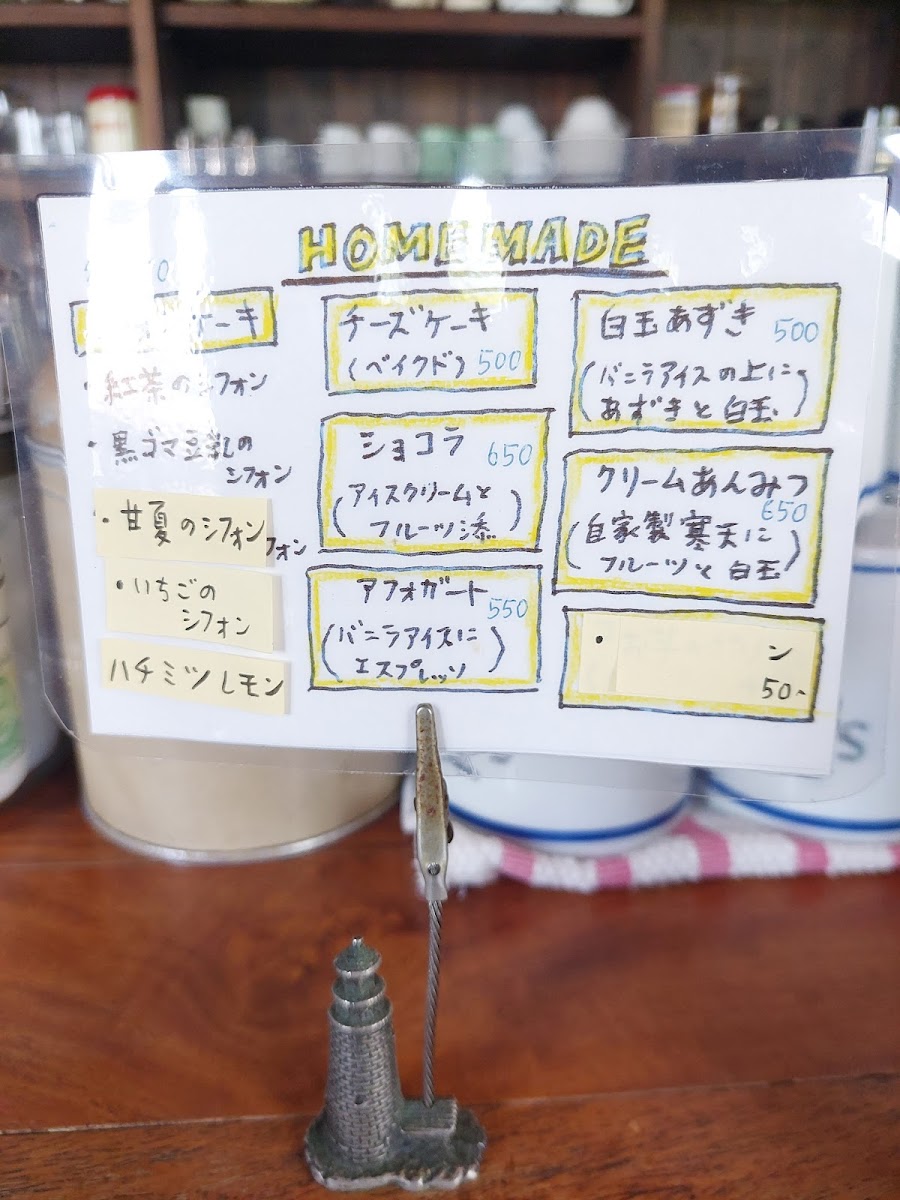 HOMEMADE
ケーキ
・紅茶のシフォン
・黒ゴマ豆乳の
シフォン
・甘夏のシフォン
フォン
・いちごの
シフォン
ハチミツレモン
チーズケーキ
(ベイクド) 500
ショコラ 650
(アイスクリームと
フルーツ添)
アフォガート 550
(バニラアイスに
エスプレッソ)
白玉あずき 500
(バニラアイスの上に
あずきと白玉)
クリームあんみつ
650
(自家製寒天に
フルーツと白玉)
・ ン
50-